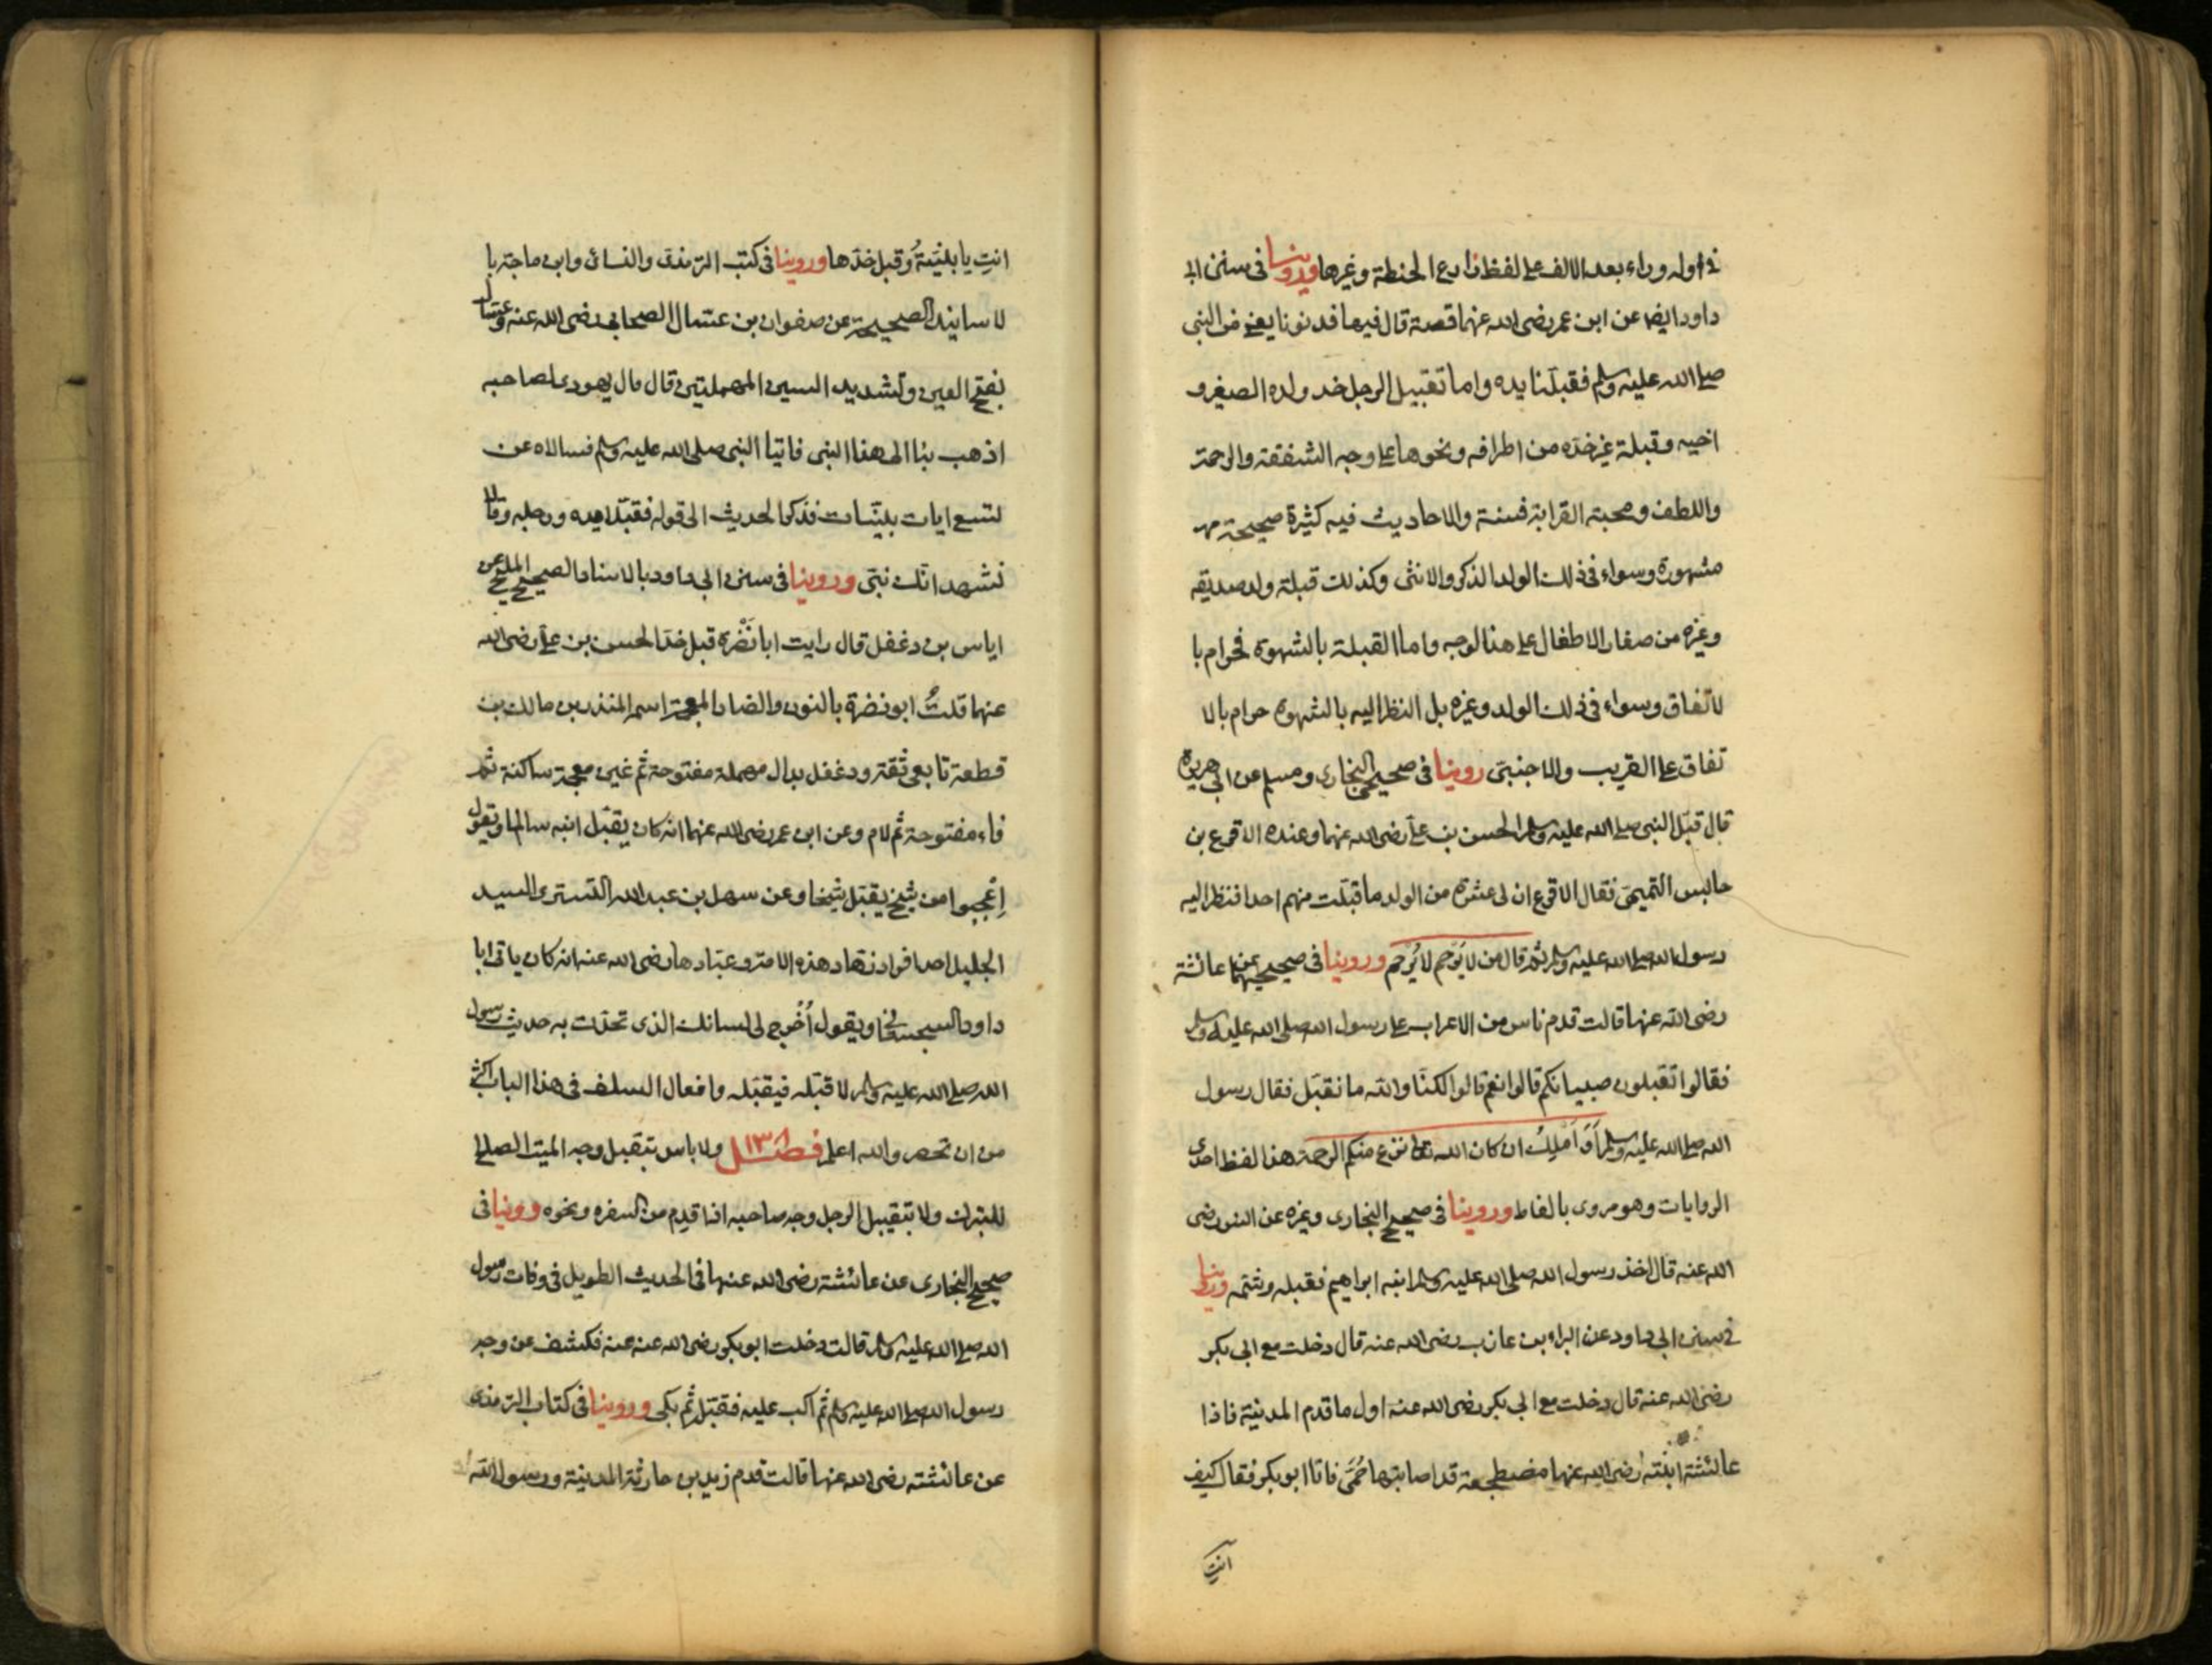 في اوله وراء بعد الالف على لفظ زارع الحنطة وغيرها وروينا في سنن ابي
داود ايضا عن ابن عمر رضى الله عنهما قصة قال فيها فدنونا يعني من النبي
صلى الله عليه وسلم فقبلنا يده واما تقبيل الرجل خد ولده الصغير و
اخيه وقبلة غير خده من اطرافه ونحوها على وجه الشفقة والرحمة
واللطف ومحبة القرابة فسنة والاحاديث فيه كثيرة صحيحة
مشهورة وسواء في ذلك الولد الذكر والانثى وكذلك قبلة ولد صديقه
وغيره من صغار الاطفال على هذا لوجه واما القبلة بالشهوة فحرام با
لاتفاق وسواء في ذلك الولد وغيره بل النظر اليه بالشهوة حرام بالا
تفاق على القريب والاجنبي روينا في صحيحي البخارى ومسلم عن ابي هريرة
قال قبّل النبي صلى الله عليه وسلم الحسن بن علىّ رضى الله عنهما وعنده الاقرع بن
حابس التميمىّ فقال الاقرع ان لى عشرة من الولد ما قبّلت منهم احدا فنظر اليه
رسول الله صلى الله عليه وسلم ثم قال من لا يَرحم لا يُرحم وروينا في صحيحيهما عن عائشة
رضى الله عنها قالت قدم ناس من الاعراب على رسول الله صلى الله عليه وسلم
فقالوا تقبلون صبيانكم قالوا نعم قالوا لكنّا والله ما نقبّل فقال رسول
الله صلى الله عليه وسلم أوَ أملِكُ ان كان الله تعالى نزع منكم الرحمة هذا لفظ احدى
الروايات وهو مروى بالفاظ وروينا في صحيح البخارى وغيره عن انس رضى
الله عنه قال اخذ رسول الله صلى الله عليه وسلم ابنه ابراهيم فقبله وشمّه وروينا
في سنن ابي داود عن البراء بن عازب رضى الله عنه قال دخلت مع ابي بكر
رضى الله عنه قال دخلت مع ابي بكر رضى الله عنه اول ما قدم المدينة فاذا
عائشة ابنته رضى الله عنها مضطجعة قد اصابتها حُمّى فاتاا ابو بكر فقال كيف
انتِ
انتِ يا بنيّةُ وقبل خدّها وروينا في كتب الترمذى والنسائى وابن ماجة با
لاسانيد الصحيحة عن صفوان بن عسّال الصحابي رضى الله عنه وعسّال
بفتح العين وتشديد السين المهملتين قال قال يهودى لصاحبه
اذهب بنا الى هذا النبى فاتيا النبى صلى الله عليه وسلم فسالاه عن
تسع ايات بيّنات فذكر الحديث الى قوله فقبّلا يده ورجله وقالا
نشهد انّك نبىّ وروينا في سنن ابي داود بالاسناد الصحيح المليح عن
اياس بن دغفل قال رايت ابا نَضْرة قبل خدّ الحسن بن علىّ رضى الله
عنهما قلتُ ابو نضرة بالنون والضاد المعجمة اسمه المنذر بن مالك بن
قطعة تابعى ثقة ودغفل بدال مهملة مفتوحة ثم غين معجمة ساكنة ثم
فاء مفتوحة ثم لام وعن ابن عمر رضى الله عنهما انّه كان يقبّل ابنه سالما ويقول
اِعْجبوا من شيخ يقبّل شيخا وعن سهل بن عبد الله التسترى السيد
الجليل احد افراد زهّاد هذه الامة وعبّادها رضى الله عنه انه كان ياتى ابا
داود السجستانى ويقول اُخرج لى لسانك الذى تحدّث به حديث رسول
الله صلى الله عليه وسلم لاقبّله فيقبّله وافعال السلف في هذا الباب اكثر
من ان تحصر والله اعلم فصل ١٣ ولا باس بتقبيل وجه الميت الصالح
للتبرك ولا بتقبيل الرجل وجه صاحبه اذا قدم من السفره ونحوه وروينا في
صحيح البخارى عن عائشة رضى الله عنها في الحديث الطويل في وفات رسول
الله صلى الله عليه وسلم قالت دخلت ابو بكر رضى الله عنه فكشف عن وجه
رسول الله صلى الله عليه وسلم ثم اكب عليه فقبّله ثم بكى وروينا في كتاب الترمذى
عن عائشة رضى الله عنها قالت قدم زيد بن حارثة المدينة ورسول الله